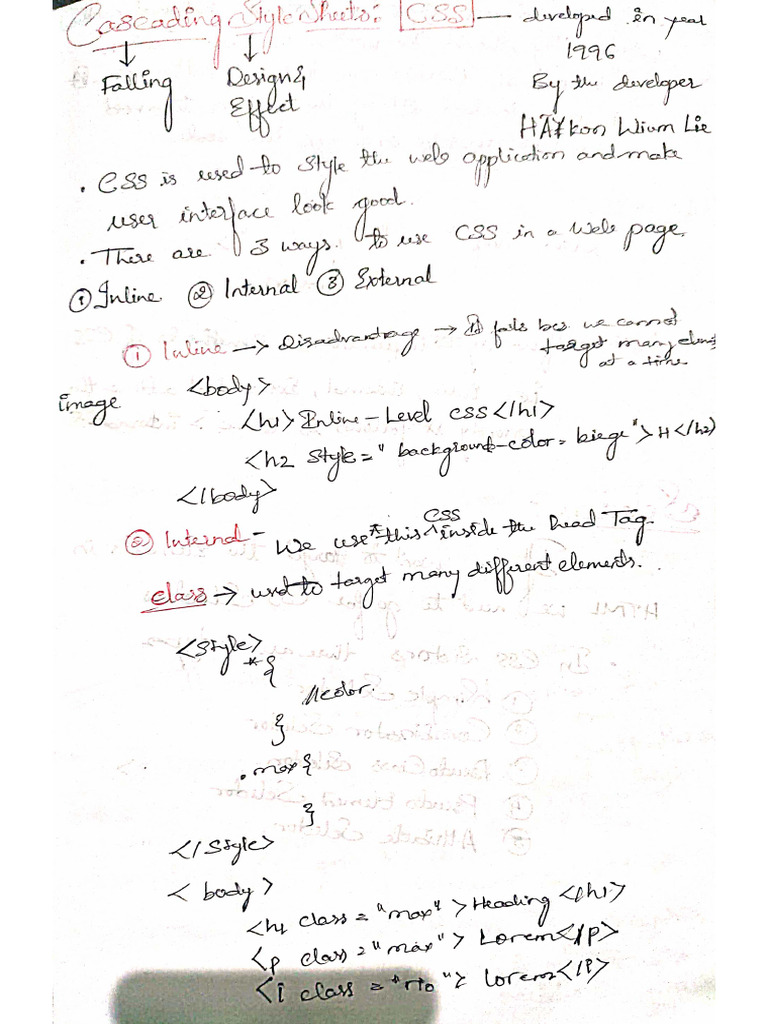 Cascading Style Sheets: CSS — developed in year
1996
Falling Design & Effect
By the developer
HÃ¥kon Wium Lie
• CSS is used to style the web application and make
user interface look good.
• There are 3 ways to use CSS in a web page.
① Inline ② Internal ③ External
① Inline → Disadvantage → It fails bcs we cannot
target many element
at a time
<body>
image
<h1> Inline-Level CSS</h1>
<h2 style=" background-color= biege"> H </h2>
</body>
② Internal - We use * this CSS inside the head Tag.
class → used to target many different elements.
<style>
*{
//color.
}
.max{
}
</style>
<body>
<h1 class="max">Heading </h1>
<p class="max"> Lorem</p>
<i class="rio"> lorem</P>